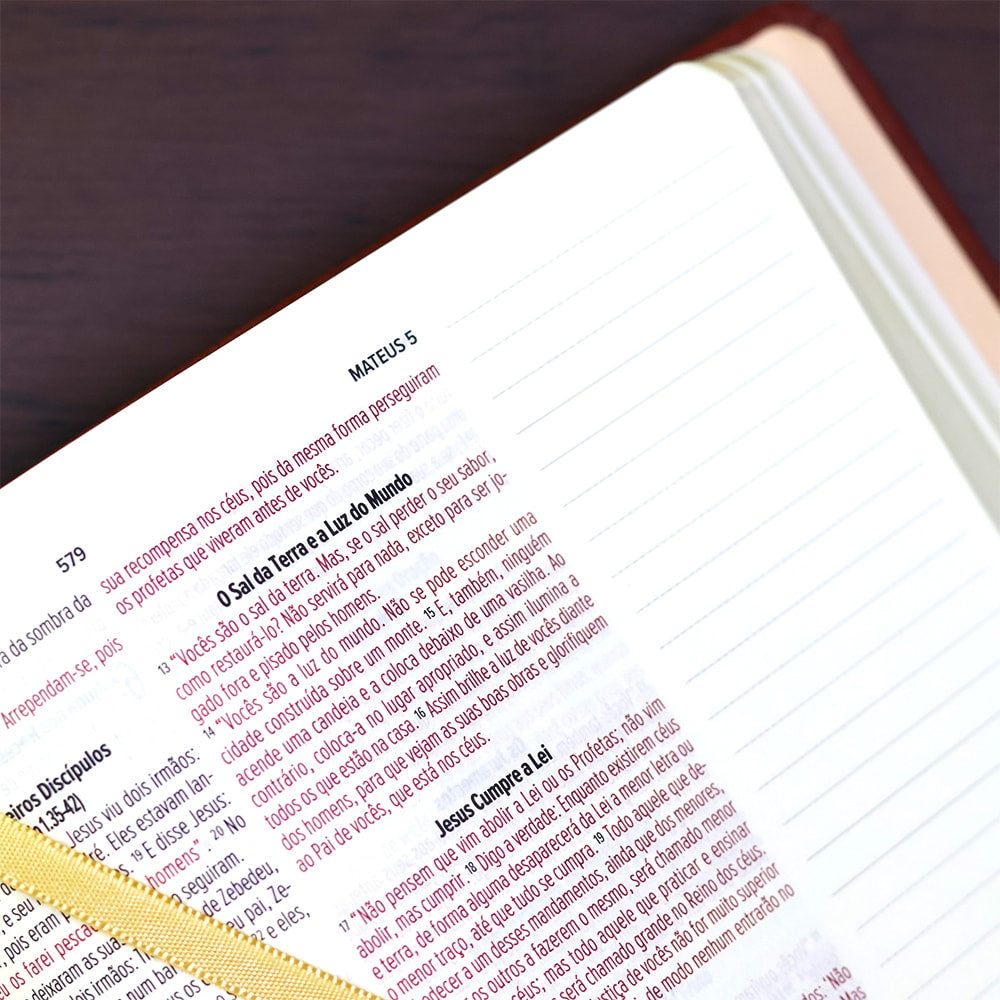 579
MATEUS 5
ra da sombra da
Arrependam-se, pois
eiros Discípulos
1.35-42)
Jesus viu dois irmãos:
ré. Eles estavam lan-
19 E disse Jesus:
homens”. 20 No
seguiram.
de Zebedeu,
eu pai, Ze-
22 e eles,
e seu
pois eram
os farei pesca
deixaram as sua
dois irmãos: T
num bar
sua recompensa nos céus, pois da mesma forma perseguiram
os profetas que viveram antes de vocês.
O Sal da Terra e a Luz do Mundo
13 “Vocês são o sal da terra. Mas, se o sal perder o seu sabor,
como restaurá-lo? Não servirá para nada, exceto para ser jo-
gado fora e pisado pelos homens.
14 “Vocês são a luz do mundo. Não se pode esconder uma
cidade construída sobre um monte. 15 E, também, ninguém
acende uma candeia e a coloca debaixo de uma vasilha. Ao
contrário, coloca-a no lugar apropriado, e assim ilumina a
todos os que estão na casa. 16 Assim brilhe a luz de vocês diante
dos homens, para que vejam as suas boas obras e glorifiquem
ao Pai de vocês, que está nos céus.
Jesus Cumpre a Lei
17 “Não pensem que vim abolir a Lei ou os Profetas; não vim
abolir, mas cumprir. 18 Digo a verdade: Enquanto existirem céus
e terra, de forma alguma desaparecerá da Lei a menor letra ou
o menor traço, até que tudo se cumpra. 19 Todo aquele que de-
sobedecer a um desses mandamentos, ainda que dos menores,
nsinar os outros a fazerem o mesmo, será chamado menor
céus, mas todo aquele que praticar e ensinar
será chamado grande no Reino dos céus.
justiça de vocês não for muito superior
de modo nenhum entrarão no